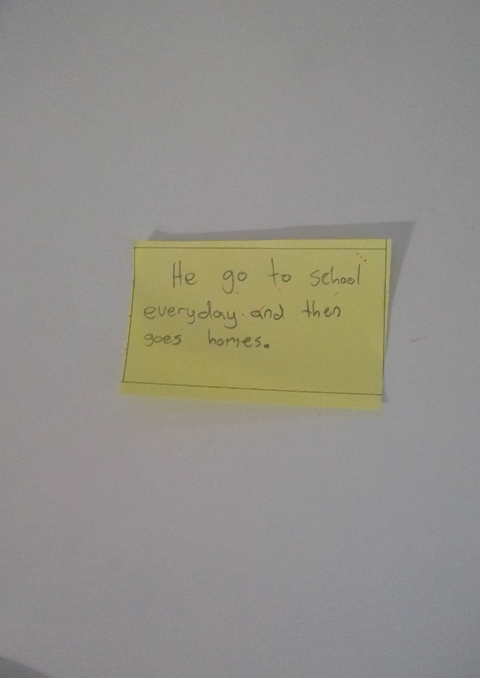 He go to school
everyday and then
goes homes.